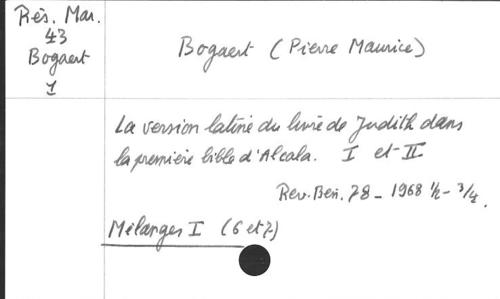 Rés. Mar.
43
Bogaert
1
Bogaert (Pierre Maurice)
La version latine du livre de Judith dans
la première bible d'Alcala. I et II
Rev. Ben. 78 - 1968 1/2 - 3/4.
Mélanges I (6 et 7)